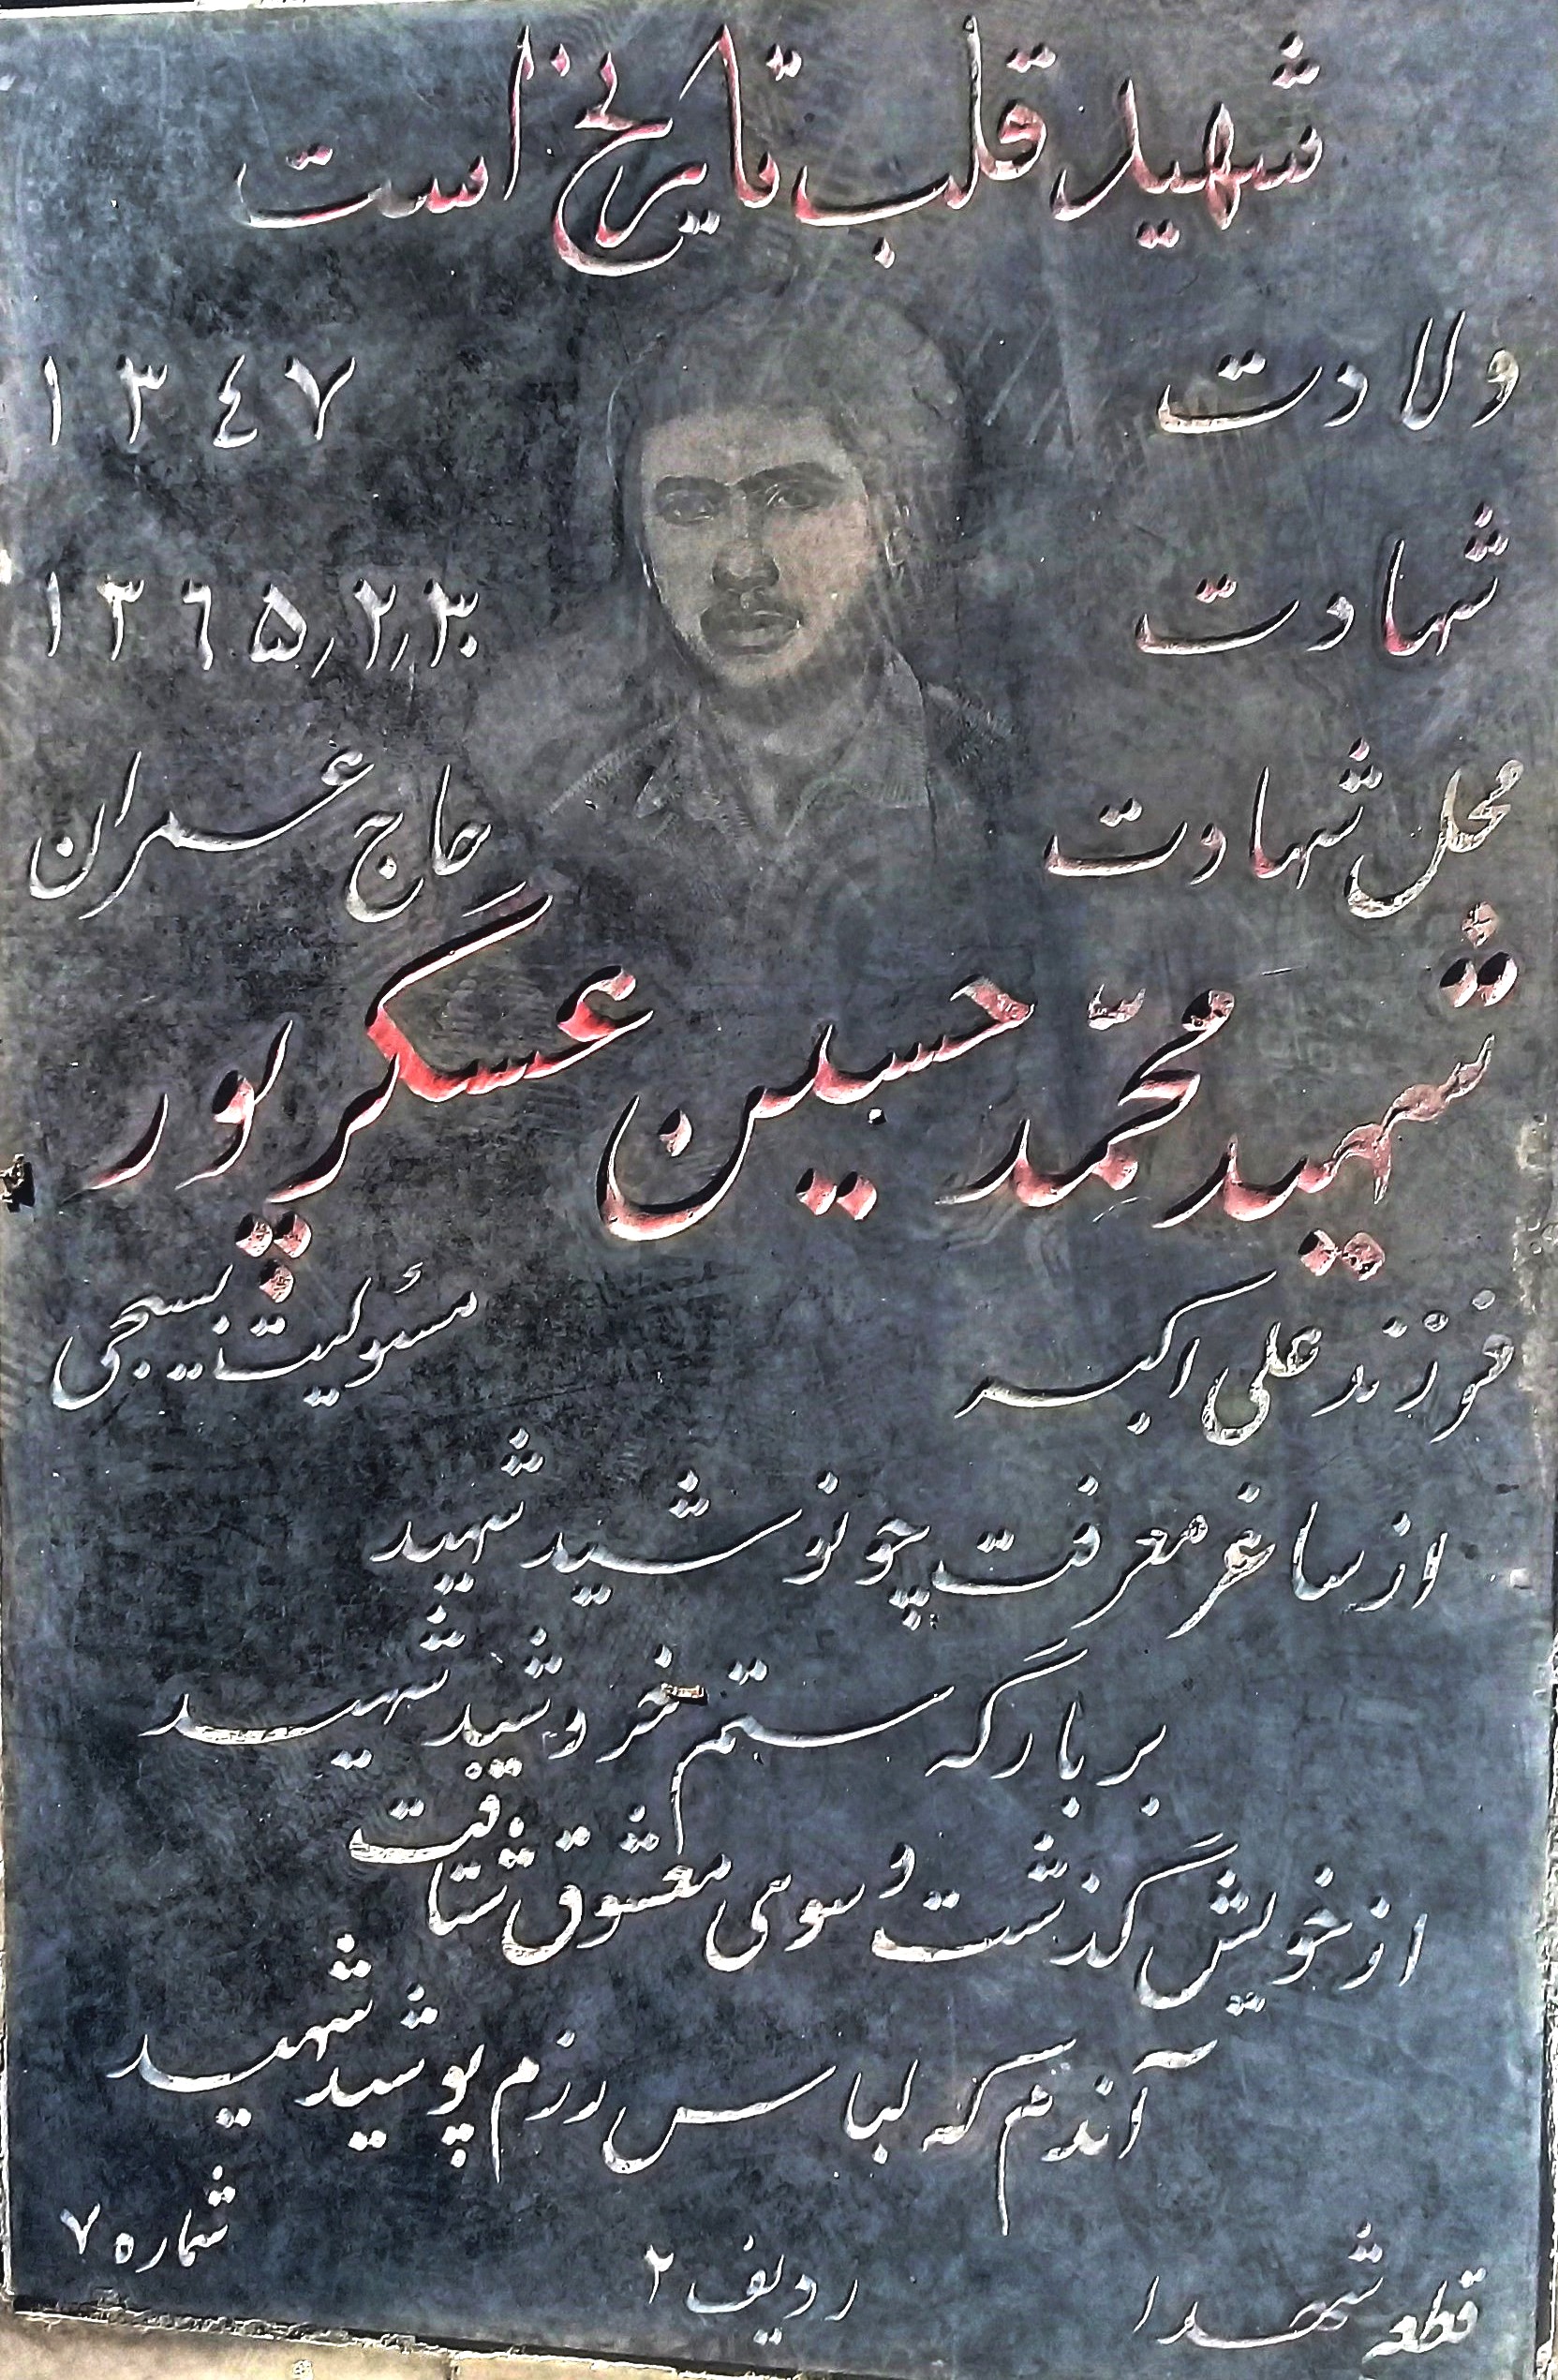 شهید قلب تاریخ است
ولادت ۱۳٤۷
شهادت ۱۳٦۵٫۲٫۳۰
محل شهادت حاج عمران
شهید محمّد حسین عسگرپور
فرزند علی اکبر مسئولیت بسیجی
از ساغر معرفت چو نوشید شهید
بر بارگه ستم خروشید شهید
از خویش گذشت و سوی معشوق شتافت
آندم که لباس رزم پوشید شهید
قطعه شهدا ردیف ۲ شماره ۷